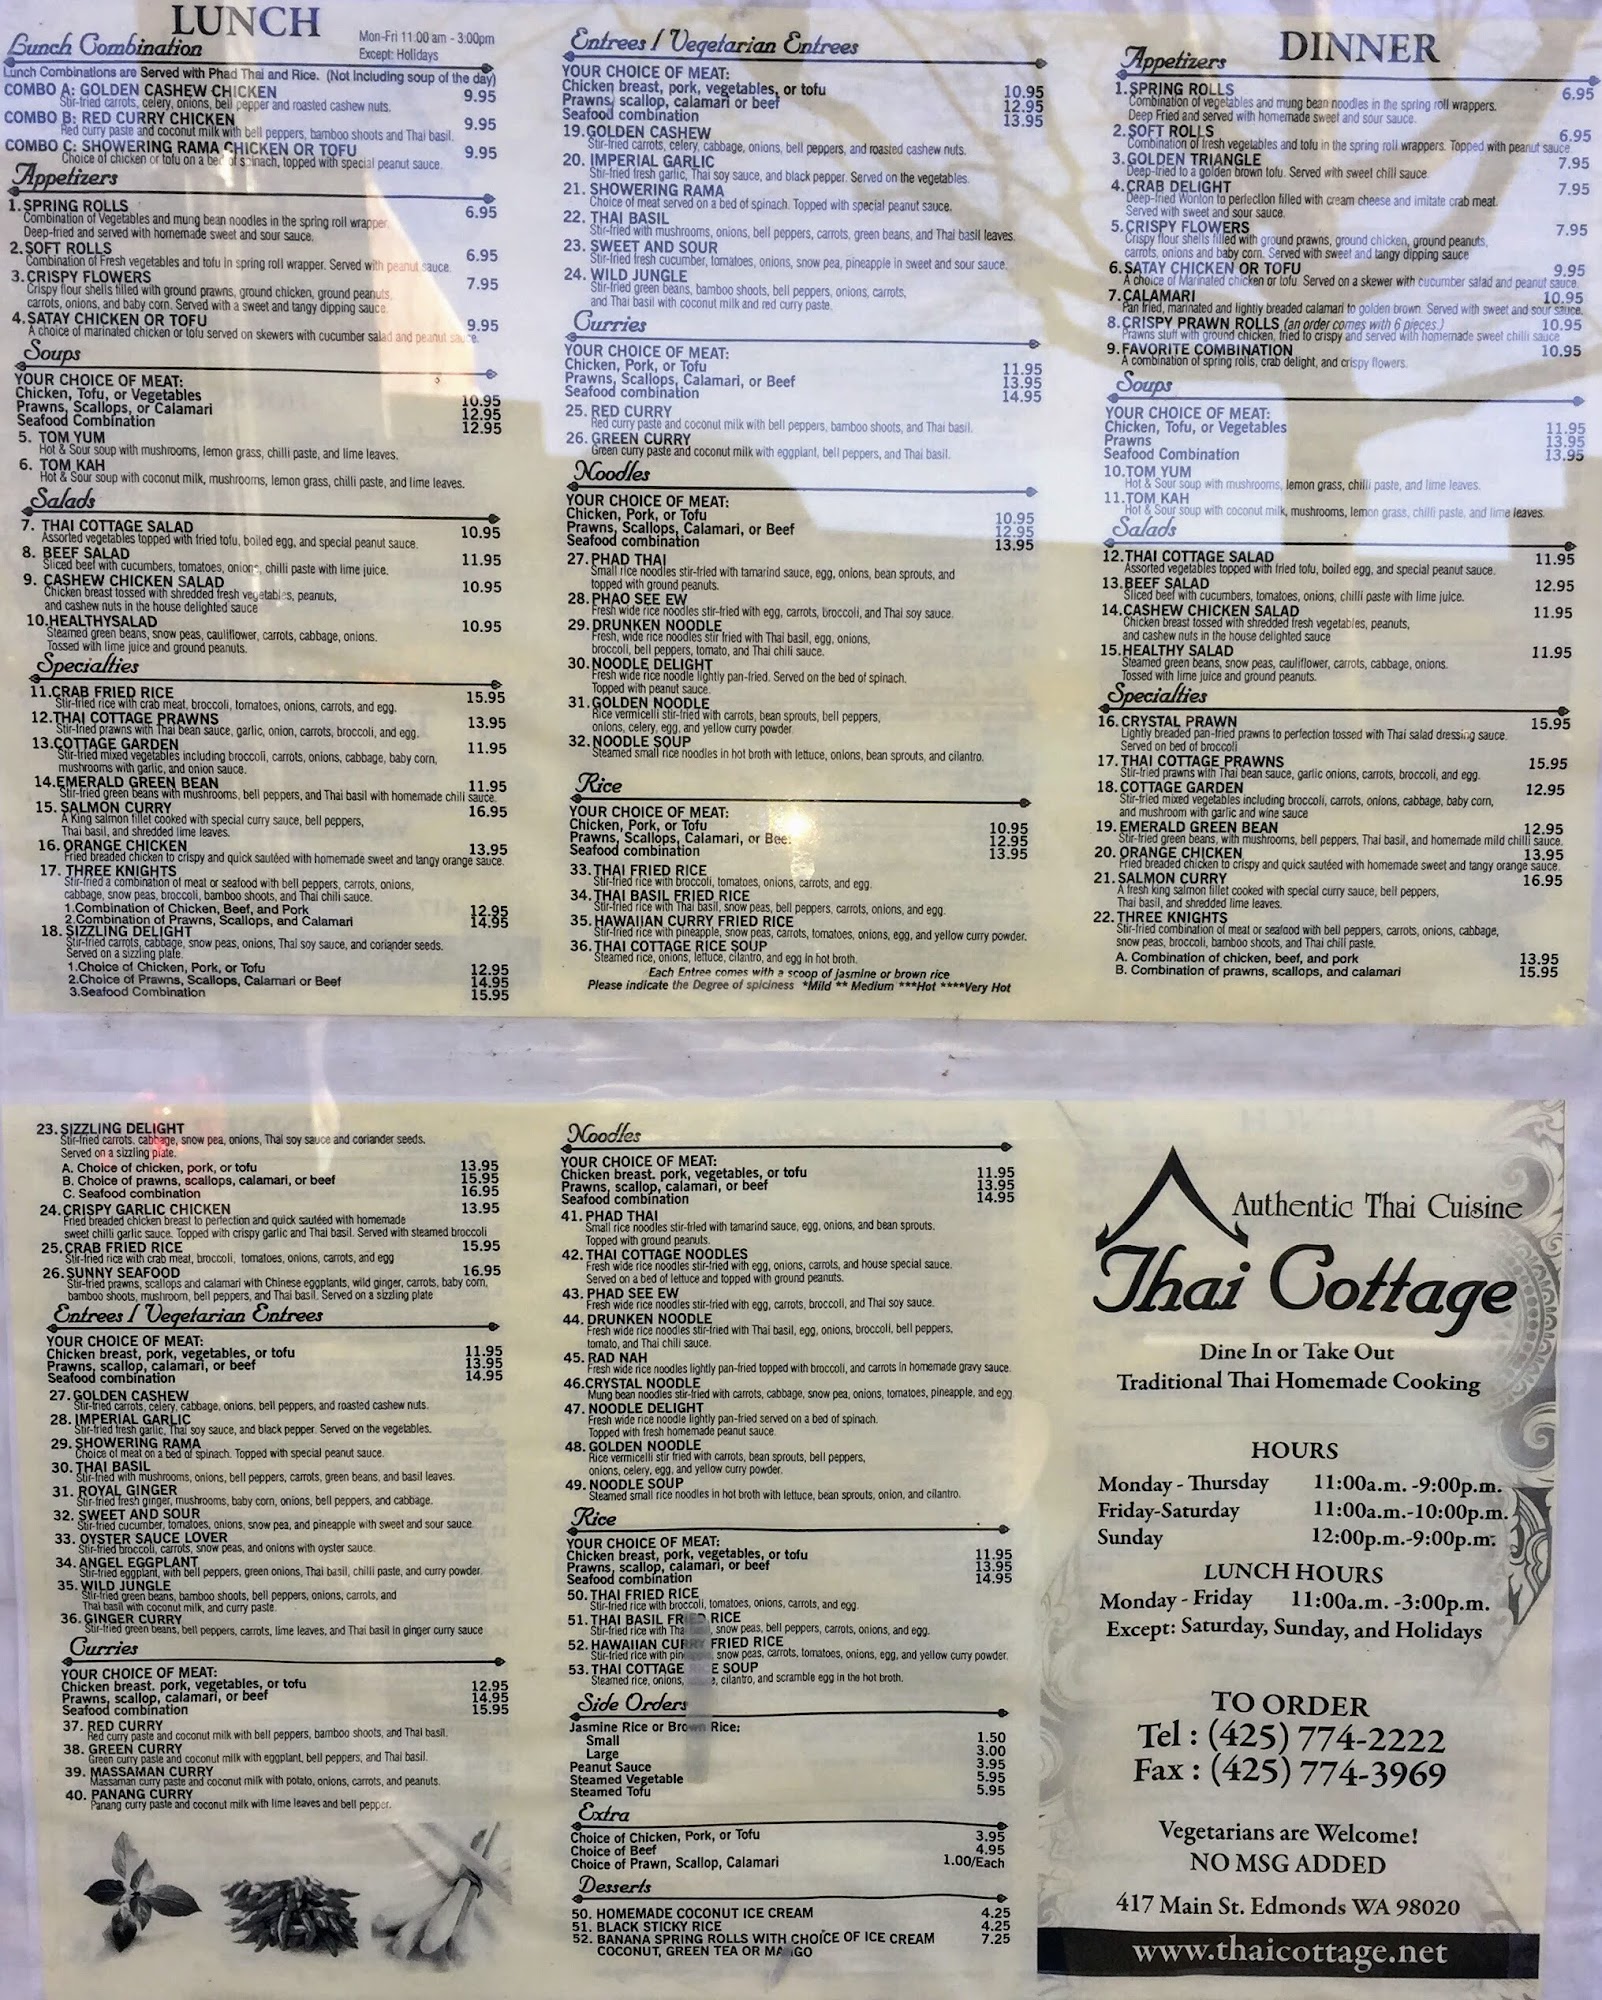 LUNCH
Mon-Fri 11:00 am - 3:00pm
Except: Holidays
Lunch Combination
Lunch Combinations are Served with Phad Thai and Rice. (Not Including soup of the day)
COMBO A: GOLDEN CASHEW CHICKEN 9.95
Stir-fried carrots, celery, onions, bell pepper and roasted cashew nuts.
COMBO B: RED CURRY CHICKEN 9.95
Red curry paste and coconut milk with bell peppers, bamboo shoots and Thai basil.
COMBO C: SHOWERING RAMA CHICKEN OR TOFU 9.95
Choice of chicken or tofu on a bed of spinach, topped with special peanut sauce.
Appetizers
1. SPRING ROLLS 6.95
Combination of Vegetables and mung bean noodles in the spring roll wrapper.
Deep-fried and served with homemade sweet and sour sauce.
2. SOFT ROLLS 6.95
Combination of Fresh vegetables and tofu in spring roll wrapper. Served with peanut sauce.
3. CRISPY FLOWERS 7.95
Crispy flour shells filled with ground prawns, ground chicken, ground peanuts,
carrots, onions, and baby corn. Served with a sweet and tangy dipping sauce.
4. SATAY CHICKEN OR TOFU 9.95
A choice of marinated chicken or tofu served on skewers with cucumber salad and peanut sauce.
Soups
YOUR CHOICE OF MEAT:
Chicken, Tofu, or Vegetables 10.95
Prawns, Scallops, or Calamari 12.95
Seafood Combination 12.95
5. TOM YUM
Hot & Sour soup with mushrooms, lemon grass, chilli paste, and lime leaves.
6. TOM KAH
Hot & Sour soup with coconut milk, mushrooms, lemon grass, chilli paste, and lime leaves.
Salads
7. THAI COTTAGE SALAD 10.95
Assorted vegetables topped with fried tofu, boiled egg, and special peanut sauce.
8. BEEF SALAD 11.95
Sliced beef with cucumbers, tomatoes, onions, chilli paste with lime juice.
9. CASHEW CHICKEN SALAD 10.95
Chicken breast tossed with shredded fresh vegetables, peanuts,
and cashew nuts in the house delighted sauce
10.HEALTHYSALAD 10.95
Steamed green beans, snow peas, cauliflower, carrots, cabbage, onions.
Tossed with lime juice and ground peanuts.
Specialties
11.CRAB FRIED RICE 15.95
Stir-fried rice with crab meat, broccoli, tomatoes, onions, carrots, and egg.
12.THAI COTTAGE PRAWNS 13.95
Stir-fried prawns with Thai bean sauce, garlic, onion, carrots, broccoli, and egg.
13.COTTAGE GARDEN 11.95
Stir-fried mixed vegetables including broccoli, carrots, onions, cabbage, baby corn,
mushrooms with garlic, and onion sauce.
14.EMERALD GREEN BEAN 11.95
Stir-fried green beans with mushrooms, bell peppers, and Thai basil with homemade chili sauce.
15. SALMON CURRY 16.95
A King salmon fillet cooked with special curry sauce, bell peppers,
Thai basil, and shredded lime leaves.
16. ORANGE CHICKEN 13.95
Fried breaded chicken to crispy and quick sautéed with homemade sweet and tangy orange sauce.
17. THREE KNIGHTS
Stir-fried a combination of meat or seafood with bell peppers, carrots, onions,
cabbage, snow peas, broccoli, bamboo shoots, and Thai chili sauce.
1.Combination of Chicken, Beef, and Pork 12.95
2.Combination of Prawns, Scallops, and Calamari 14.95
18. SIZZLING DELIGHT
Stir-fried carrots, cabbage, snow peas, onions, Thai soy sauce, and coriander seeds.
Served on a sizzling plate.
1.Choice of Chicken, Pork, or Tofu 12.95
2.Choice of Prawns, Scallops, Calamari or Beef 14.95
3.Seafood Combination 15.95
Entrees / Vegetarian Entrees
YOUR CHOICE OF MEAT:
Chicken breast, pork, vegetables, or tofu 10.95
Prawns, scallop, calamari or beef 12.95
Seafood combination 13.95
19.GOLDEN CASHEW
Stir-fried carrots, celery, cabbage, onions, bell peppers, and roasted cashew nuts.
20. IMPERIAL GARLIC
Stir-fried fresh garlic, Thai soy sauce, and black pepper. Served on the vegetables.
21. SHOWERING RAMA
Choice of meat served on a bed of spinach. Topped with special peanut sauce.
22. THAI BASIL
Stir-fried with mushrooms, onions, bell peppers, carrots, green beans, and Thai basil leaves.
23. SWEET AND SOUR
Stir-fried fresh cucumber, tomatoes, onions, snow pea, pineapple in sweet and sour sauce.
24. WILD JUNGLE
Stir-fried green beans, bamboo shoots, bell peppers, onions, carrots,
and Thai basil with coconut milk and red curry paste.
Curries
YOUR CHOICE OF MEAT:
Chicken, Pork, or Tofu 11.95
Prawns, Scallops, Calamari, or Beef 13.95
Seafood combination 14.95
25. RED CURRY
Red curry paste and coconut milk with bell peppers, bamboo shoots, and Thai basil.
26. GREEN CURRY
Green curry paste and coconut milk with eggplant, bell peppers, and Thai basil.
Noodles
YOUR CHOICE OF MEAT:
Chicken, Pork, or Tofu 10.95
Prawns, Scallops, Calamari, or Beef 12.95
Seafood combination 13.95
27. PHAD THAI
Small rice noodles stir-fried with tamarind sauce, egg, onions, bean sprouts, and
topped with ground peanuts.
28. PHAO SEE EW
Fresh wide rice noodles stir-fried with egg, carrots, broccoli, and Thai soy sauce.
29. DRUNKEN NOODLE
Fresh, wide rice noodles stir fried with Thai basil, egg, onions,
broccoli, bell peppers, tomato, and Thai chili sauce.
30. NOODLE DELIGHT
Fresh wide rice noodle lightly pan-fried. Served on the bed of spinach.
Topped with peanut sauce.
31. GOLDEN NOODLE
Rice vermicelli stir-fried with carrots, bean sprouts, bell peppers,
onions, celery, egg, and yellow curry powder
32. NOODLE SOUP
Steamed small rice noodles in hot broth with lettuce, onions, bean sprouts, and cilantro.
Rice
YOUR CHOICE OF MEAT:
Chicken, Pork, or Tofu 10.95
Prawns, Scallops, Calamari, or Bee 12.95
Seafood combination 13.95
33. THAI FRIED RICE
Stir-fried rice with broccoli, tomatoes, onions, carrots, and egg.
34. THAI BASIL FRIED RICE
Stir-fried rice with Thai basil, snow peas, bell peppers, carrots, onions, and egg.
35. HAWAIIAN CURRY FRIED RICE
Stir-fried rice with pineapple, snow peas, carrots, tomatoes, onions, egg, and yellow curry powder.
36. THAI COTTAGE RICE SOUP
Steamed rice, onions, lettuce, cilantro, and egg in hot broth.
Each Entree comes with a scoop of jasmine or brown rice
Please indicate the Degree of spiciness *Mild ** Medium ***Hot ****Very Hot
DINNER
Appetizers
1.SPRING ROLLS 6.95
Combination of vegetables and mung bean noodles in the spring roll wrappers.
Deep Fried and served with homemade sweet and sour sauce.
2.SOFT ROLLS 6.95
Combination of fresh vegetables and tofu in the spring roll wrappers. Topped with peanut sauce
3.GOLDEN TRIANGLE 7.95
Deep-fried to a golden brown tofu. Served with sweet chili sauce.
4.CRAB DELIGHT 7.95
Deep-fried Wonton to perfection filled with cream cheese and imitate crab meat.
Served with sweet and sour sauce.
5.CRISPY FLOWERS 7.95
Crispy flour shells filled with ground prawns, ground chicken, ground peanuts,
carrots, onions and baby corn. Served with sweet and tangy dipping sauce
6.SATAY CHICKEN OR TOFU 9.95
A choice of Marinated chicken or tofu. Served on a skewer with cucumber salad and peanut sauce.
7.CALAMARI 10.95
Pan fried, marinated and lightly breaded calamari to golden brown. Served with sweet and sour sauce.
8.CRISPY PRAWN ROLLS (an order comes with 6 pieces.) 10.95
Prawns stuff with ground chicken, fried to crispy and served with homemade sweet chilli sauce
9.FAVORITE COMBINATION 10.95
A combination of spring rolls, crab delight, and crispy flowers.
Soups
YOUR CHOICE OF MEAT:
Chicken, Tofu, or Vegetables 11.95
Prawns 13.95
Seafood Combination 13.95
10.TOM YUM
Hot & Sour soup with mushrooms, lemon grass, chilli paste, and lime leaves.
11.TOM KAH
Hot & Sour soup with coconut milk, mushrooms, lemon grass, chilli paste, and lime leaves.
Salads
12.THAI COTTAGE SALAD 11.95
Assorted vegetables topped with fried tofu, boiled egg, and special peanut sauce.
13.BEEF SALAD 12.95
Sliced beef with cucumbers, tomatoes, onions, chilli paste with lime juice.
14.CASHEW CHICKEN SALAD 11.95
Chicken breast tossed with shredded fresh vegetables, peanuts,
and cashew nuts in the house delighted sauce
15.HEALTHY SALAD 11.95
Steamed green beans, snow peas, cauliflower, carrots, cabbage, onions.
Tossed with lime juice and ground peanuts.
Specialties
16. CRYSTAL PRAWN 15.95
Lightly breaded pan-fried prawns to perfection tossed with Thai salad dressing sauce.
Served on bed of broccoli
17. THAI COTTAGE PRAWNS 15.95
Stir-fried prawns with Thai bean sauce, garlic onions, carrots, broccoli, and egg.
18. COTTAGE GARDEN 12.95
Stir-fried mixed vegetables including broccoli, carrots, onions, cabbage, baby corn,
and mushroom with garlic and wine sauce
19. EMERALD GREEN BEAN 12.95
Stir-fried green beans, with mushrooms, bell peppers, Thai basil, and homemade mild chilli sauce.
20. ORANGE CHICKEN 13.95
Fried breaded chicken to crispy and quick sautéed with homemade sweet and tangy orange sauce.
21. SALMON CURRY 16.95
A fresh king salmon fillet cooked with special curry sauce, bell peppers,
Thai basil, and shredded lime leaves.
22. THREE KNIGHTS
Stir-fried combination of meat or seafood with bell peppers, carrots, onions, cabbage,
snow peas, broccoli, bamboo shoots, and Thai chili paste.
A. Combination of chicken, beef, and pork 13.95
B. Combination of prawns, scallops, and calamari 15.95
23. SIZZLING DELIGHT
Stir-fried carrots, cabbage, snow pea, onions, Thai soy sauce and coriander seeds.
Served on a sizzling plate.
A. Choice of chicken, pork, or tofu 13.95
B. Choice of prawns, scallops, calamari, or beef 15.95
C. Seafood combination 16.95
24. CRISPY GARLIC CHICKEN 13.95
Fried breaded chicken breast to perfection and quick sautéed with homemade
sweet chilli garlic sauce. Topped with crispy garlic and Thai basil. Served with steamed broccoli
25. CRAB FRIED RICE 15.95
Stir-fried rice with crab meat, broccoli, tomatoes, onions, carrots, and egg
26. SUNNY SEAFOOD 16.95
Stir-fried prawns, scallops and calamari with Chinese eggplants, wild ginger, carrots, baby corn,
bamboo shoots, mushroom, bell peppers, and Thai basil. Served on a sizzling plate
Entrees / Vegetarian Entrees
YOUR CHOICE OF MEAT:
Chicken breast, pork, vegetables, or tofu 11.95
Prawns, scallop, calamari, or beef 13.95
Seafood combination 14.95
27. GOLDEN CASHEW
Stir-fried carrots, celery, cabbage, onions, bell peppers, and roasted cashew nuts.
28. IMPERIAL GARLIC
Stir-fried fresh garlic, Thai soy sauce, and black pepper. Served on the vegetables.
29. SHOWERING RAMA
Choice of meat on a bed of spinach. Topped with special peanut sauce.
30. THAI BASIL
Stir-fried with mushrooms, onions, bell peppers, carrots, green beans, and basil leaves.
31. ROYAL GINGER
Stir-fried fresh ginger, mushrooms, baby corn, onions, bell peppers, and cabbage.
32. SWEET AND SOUR
Stir-fried cucumber, tomatoes, onions, snow pea, and pineapple with sweet and sour sauce.
33. OYSTER SAUCE LOVER
Stir-fried broccoli, carrots, snow peas, and onions with oyster sauce.
34. ANGEL EGGPLANT
Stir-fried eggplant, with bell peppers, green onions, Thai basil, chilli paste, and curry powder.
35. WILD JUNGLE
Stir-fried green beans, bamboo shoots, bell peppers, onions, carrots, and
Thai basil with coconut milk, and curry paste.
36. GINGER CURRY
Stir-fried green beans, bell peppers, carrots, lime leaves, and Thai basil in ginger curry sauce
Curries
YOUR CHOICE OF MEAT:
Chicken breast. pork, vegetables, or tofu 12.95
Prawns, scallop, calamari, or beef 14.95
Seafood combination 15.95
37. RED CURRY
Red curry paste and coconut milk with bell peppers, bamboo shoots, and Thai basil.
38. GREEN CURRY
Green curry paste and coconut milk with eggplant, bell peppers, and Thai basil.
39. MASSAMAN CURRY
Massaman curry paste and coconut milk with potato, onions, carrots, and peanuts.
40. PANANG CURRY
Panang curry paste and coconut milk with lime leaves and bell pepper.
Noodles
YOUR CHOICE OF MEAT:
Chicken breast. pork, vegetables, or tofu 11.95
Prawns, scallop, calamari, or beef 13.95
Seafood combination 14.95
41. PHAD THAI
Small rice noodles stir-fried with tamarind sauce, egg, onions, and bean sprouts.
Topped with ground peanuts.
42. THAI COTTAGE NOODLES
Fresh wide rice noodles stir-fried with egg, onions, carrots, and house special sauce.
Served on a bed of lettuce and topped with ground peanuts.
43. PHAD SEE EW
Fresh wide rice noodles stir-fried with egg, carrots, broccoli, and Thai soy sauce.
44. DRUNKEN NOODLE
Fresh wide rice noodles stir-fried with Thai basil, egg, onions, broccoli, bell peppers,
tomato, and Thai chili sauce.
45. RAD NAH
Fresh wide rice noodles lightly pan-fried topped with broccoli, and carrots in homemade gravy sauce.
46.CRYSTAL NOODLE
Mung bean noodles stir-fried with carrots, cabbage, snow pea, onions, tomatoes, pineapple, and egg.
47. NOODLE DELIGHT
Fresh wide rice noodle lightly pan-fried served on a bed of spinach.
Topped with fresh homemade peanut sauce.
48. GOLDEN NOODLE
Rice vermicelli stir fried with carrots, bean sprouts, bell peppers,
onions, celery, egg, and yellow curry powder.
49. NOODLE SOUP
Steamed small rice noodles in hot broth with lettuce, bean sprouts, onion, and cilantro.
Rice
YOUR CHOICE OF MEAT:
Chicken breast, pork, vegetables, or tofu 11.95
Prawns, scallop, calamari, or beef 13.95
Seafood combination 14.95
50. THAI FRIED RICE
Stir-fried rice with broccoli, tomatoes, onions, carrots, and egg.
51. THAI BASIL FRIED RICE
Stir-fried rice with , snow peas, bell peppers, carrots, onions, and egg.
52. HAWAIIAN CURRY FRIED RICE
Stir-fried rice with snow peas, carrots, tomatoes, onions, egg, and yellow curry powder.
53. THAI COTTAGE SOUP
Steamed rice, onions, , cilantro, and scramble egg in the hot broth.
Side Orders
Jasmine Rice or Brown Rice:
Small 1.50
Large 3.00
Peanut Sauce 3.95
Steamed Vegetable 5.95
Steamed Tofu 5.95
Extra
Choice of Chicken, Pork, or Tofu 3.95
Choice of Beef 4.95
Choice of Prawn, Scallop, Calamari 1.00/Each
Desserts
50. HOMEMADE COCONUT ICE CREAM 4.25
51. BLACK STICKY RICE 4.25
52. BANANA SPRING ROLLS WITH CHOICE OF ICE CREAM 7.25
COCONUT, GREEN TEA OR MANGO
Authentic Thai Cuisine
Thai Cottage
Dine In or Take Out
Traditional Thai Homemade Cooking
HOURS
Monday - Thursday 11:00a.m. -9:00p.m.
Friday-Saturday 11:00a.m.-10:00p.m.
Sunday 12:00p.m.-9:00p.m.
LUNCH HOURS
Monday - Friday 11:00a.m. -3:00p.m.
Except: Saturday, Sunday, and Holidays
TO ORDER
Tel : (425) 774-2222
Fax : (425) 774-3969
Vegetarians are Welcome!
NO MSG ADDED
417 Main St. Edmonds WA 98020
www.thaicottage.net